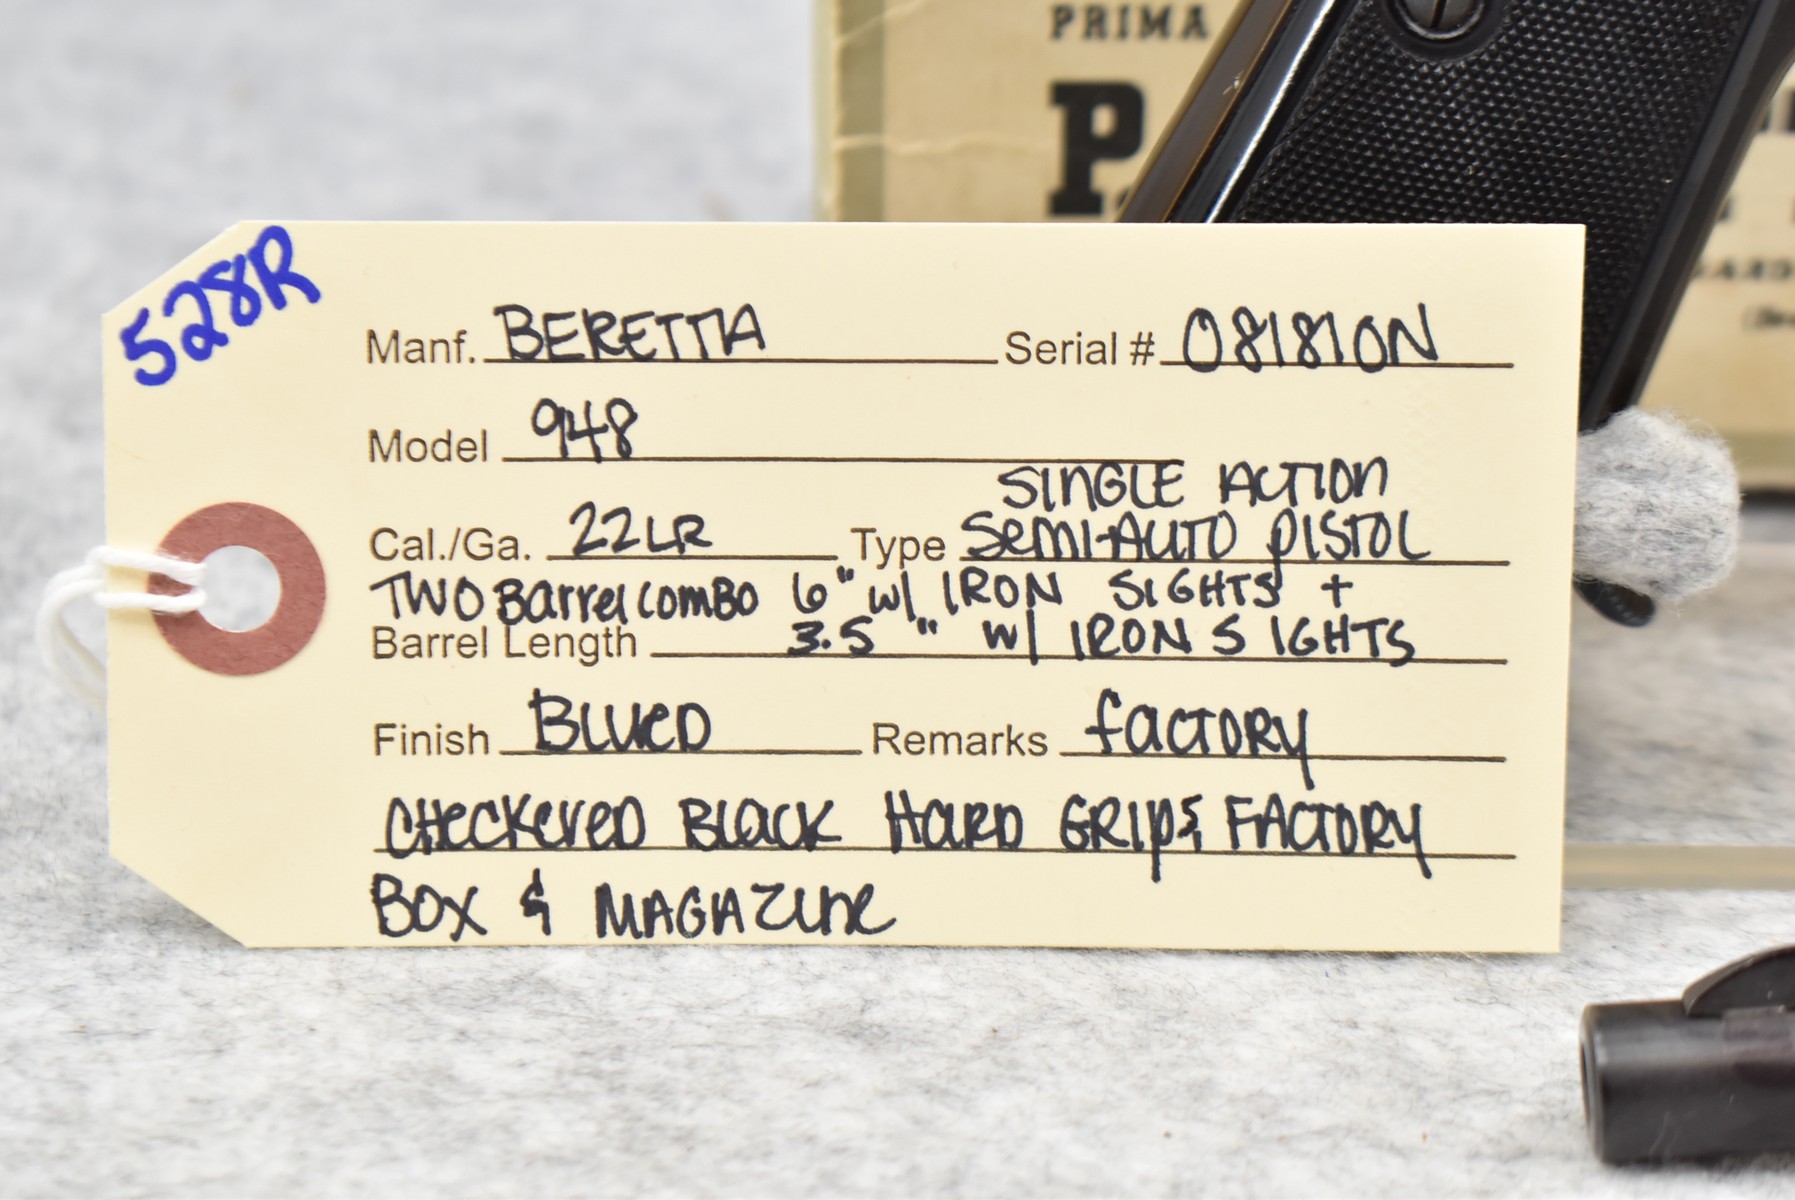 PRIMA
P
528R
Manf. BERETTA Serial # 081810N
Model 948
SINGLE ACTION
Cal./Ga. 22LR Type SEMI-AUTO PISTOL
TWO Barrel comBO 6" w/ IRON SIGHTS +
Barrel Length 3.5" w/ IRON SIGHTS
Finish BLUED Remarks factory
CHECKERED BLACK HARD GRIPS, FACTORY
BOX & MAGAZINE